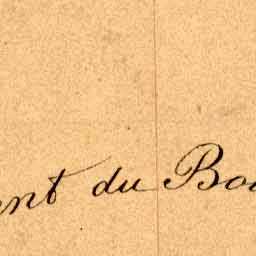 ent du Bo